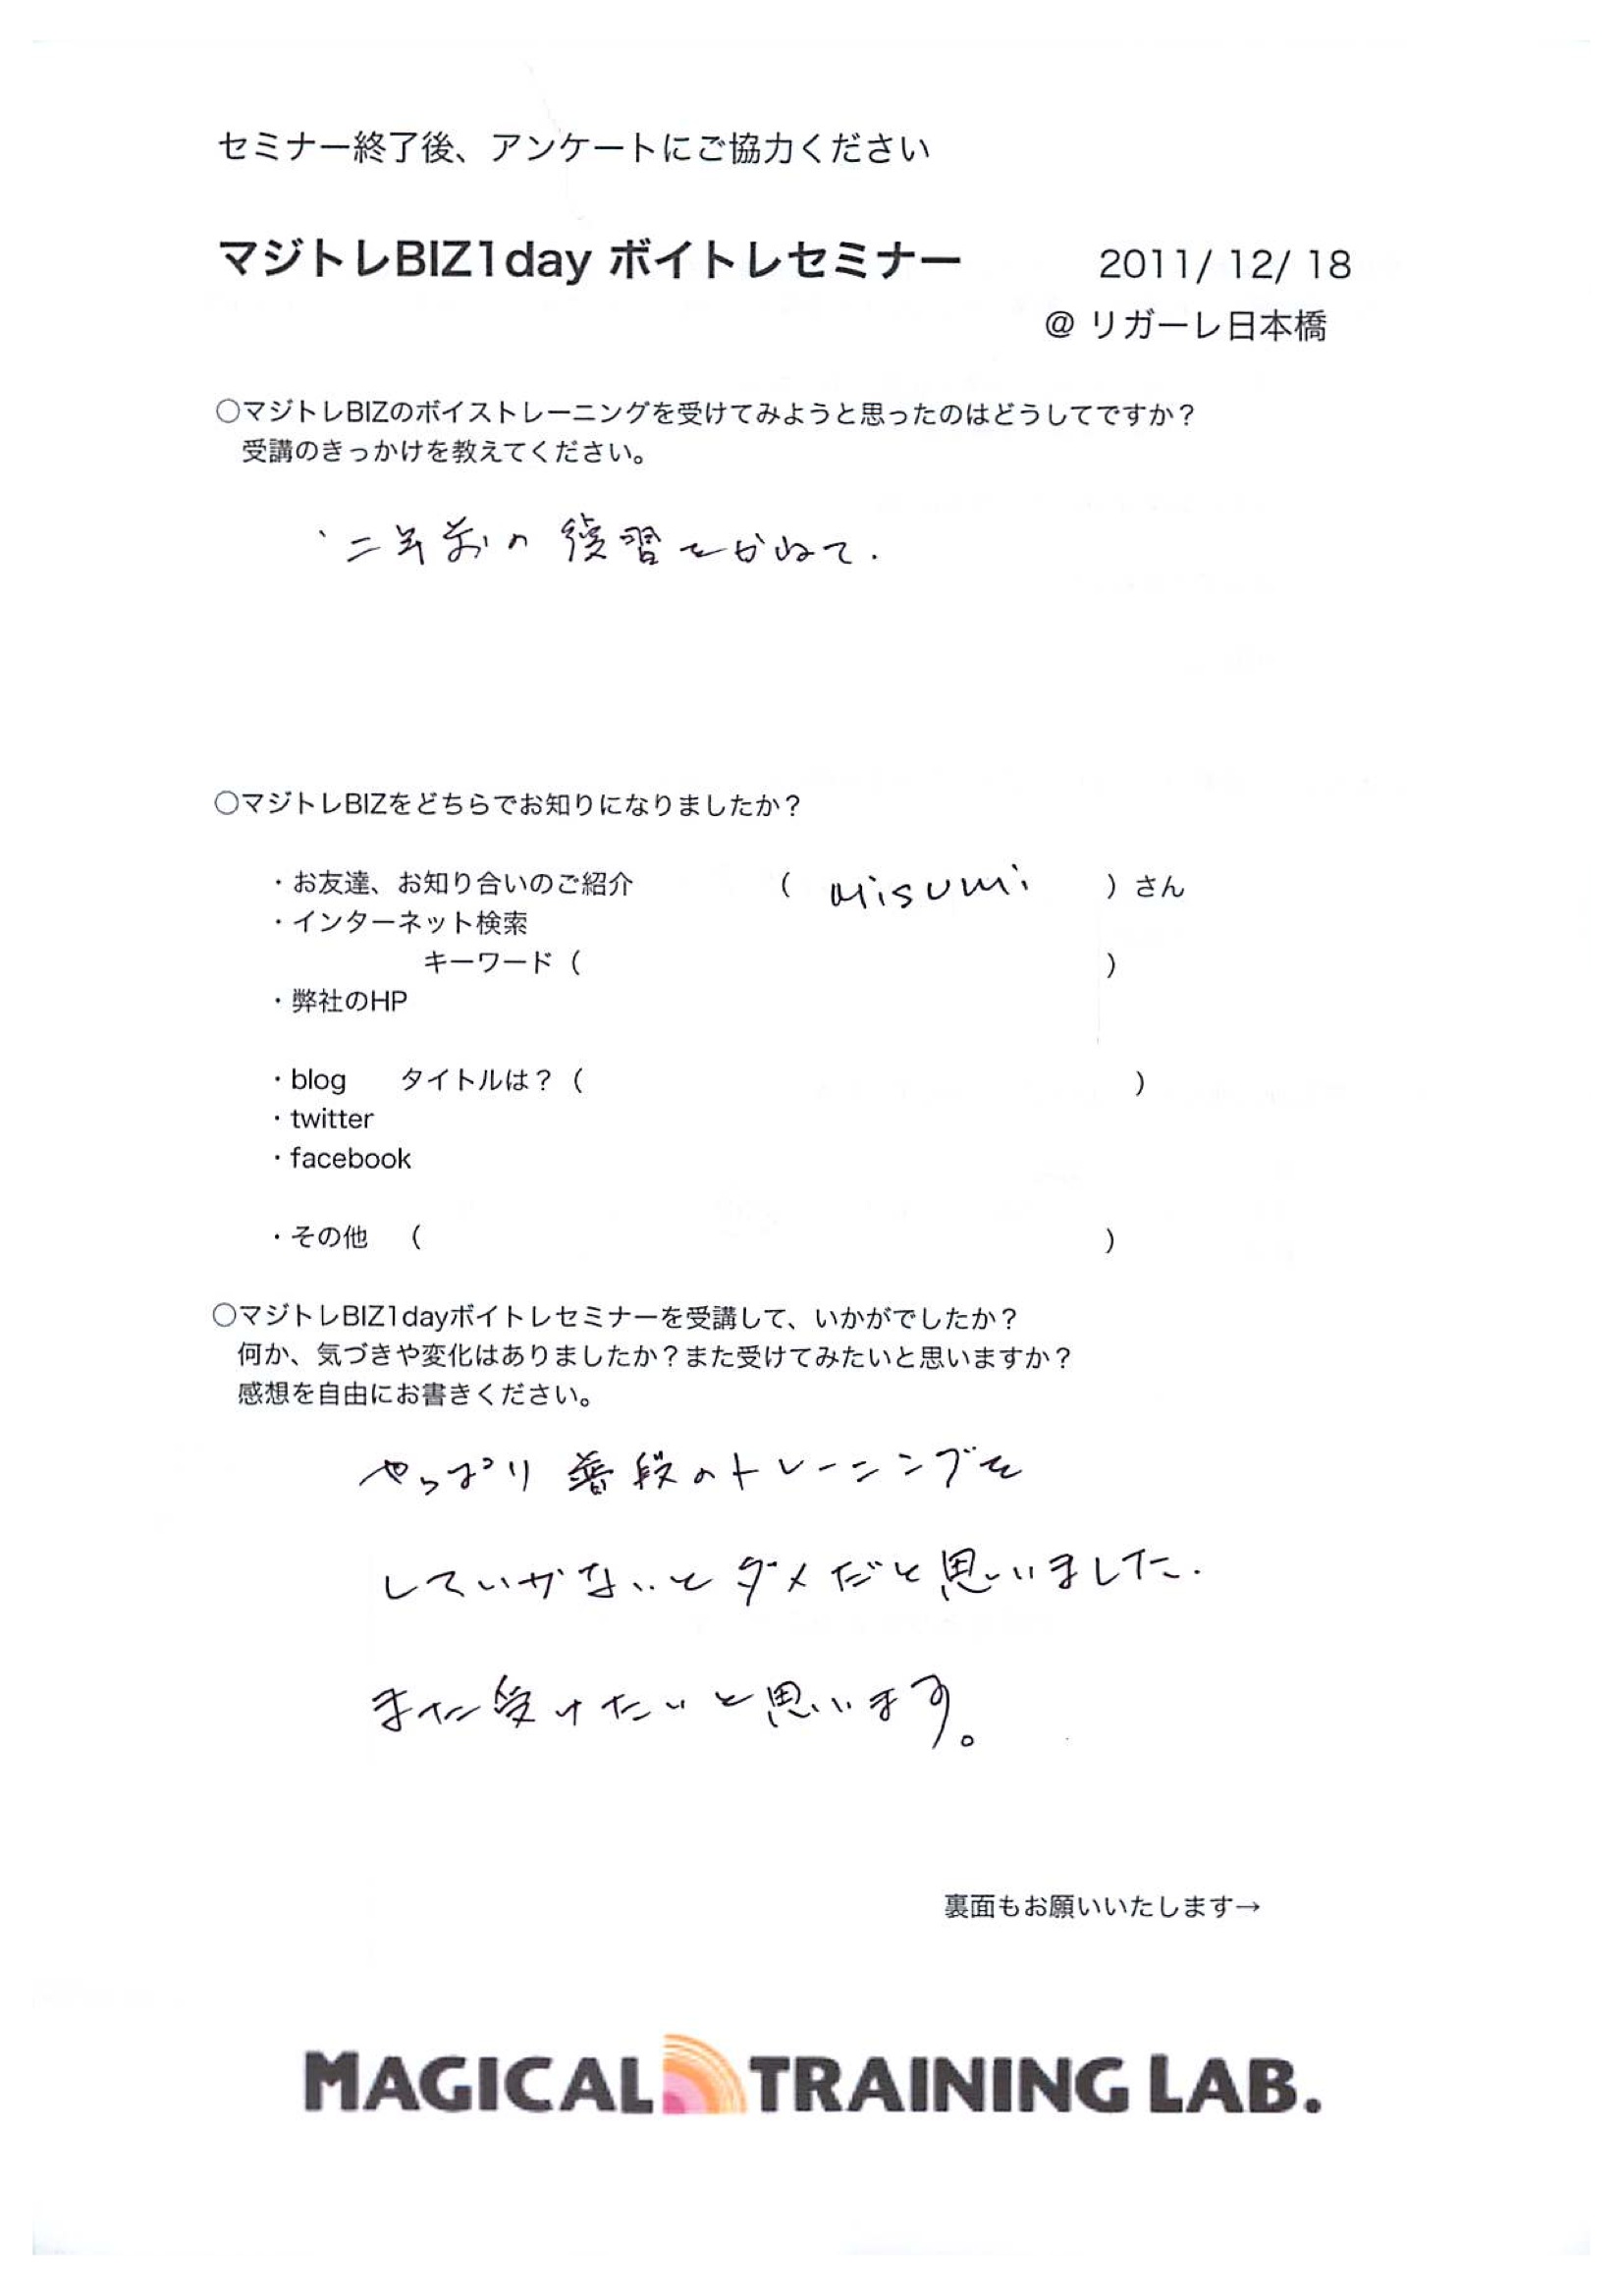 セミナー終了後、アンケートにご協力ください
マジトレBIZ1day ボイトレセミナー 2011/ 12/ 18
@ リガーレ日本橋
○マジトレBIZのボイストレーニングを受けてみようと思ったのはどうしてですか？
受講のきっかけを教えてください。
二年前の復習をかねて.
○マジトレBIZをどちらでお知りになりましたか？
・お友達、お知り合いのご紹介 （ Misumi ）さん
・インターネット検索
キーワード（ ）
・弊社のHP
・blog タイトルは？（ ）
・twitter
・facebook
・その他 （ ）
○マジトレBIZ1dayボイトレセミナーを受講して、いかがでしたか？
何か、気づきや変化はありましたか？また受けてみたいと思いますか？
感想を自由にお書きください。
やっぱり普段のトレーニングを
していかないとダメだと思いました.
また受けたいと思います。
裏面もお願いいたします→
MAGICAL TRAINING LAB.